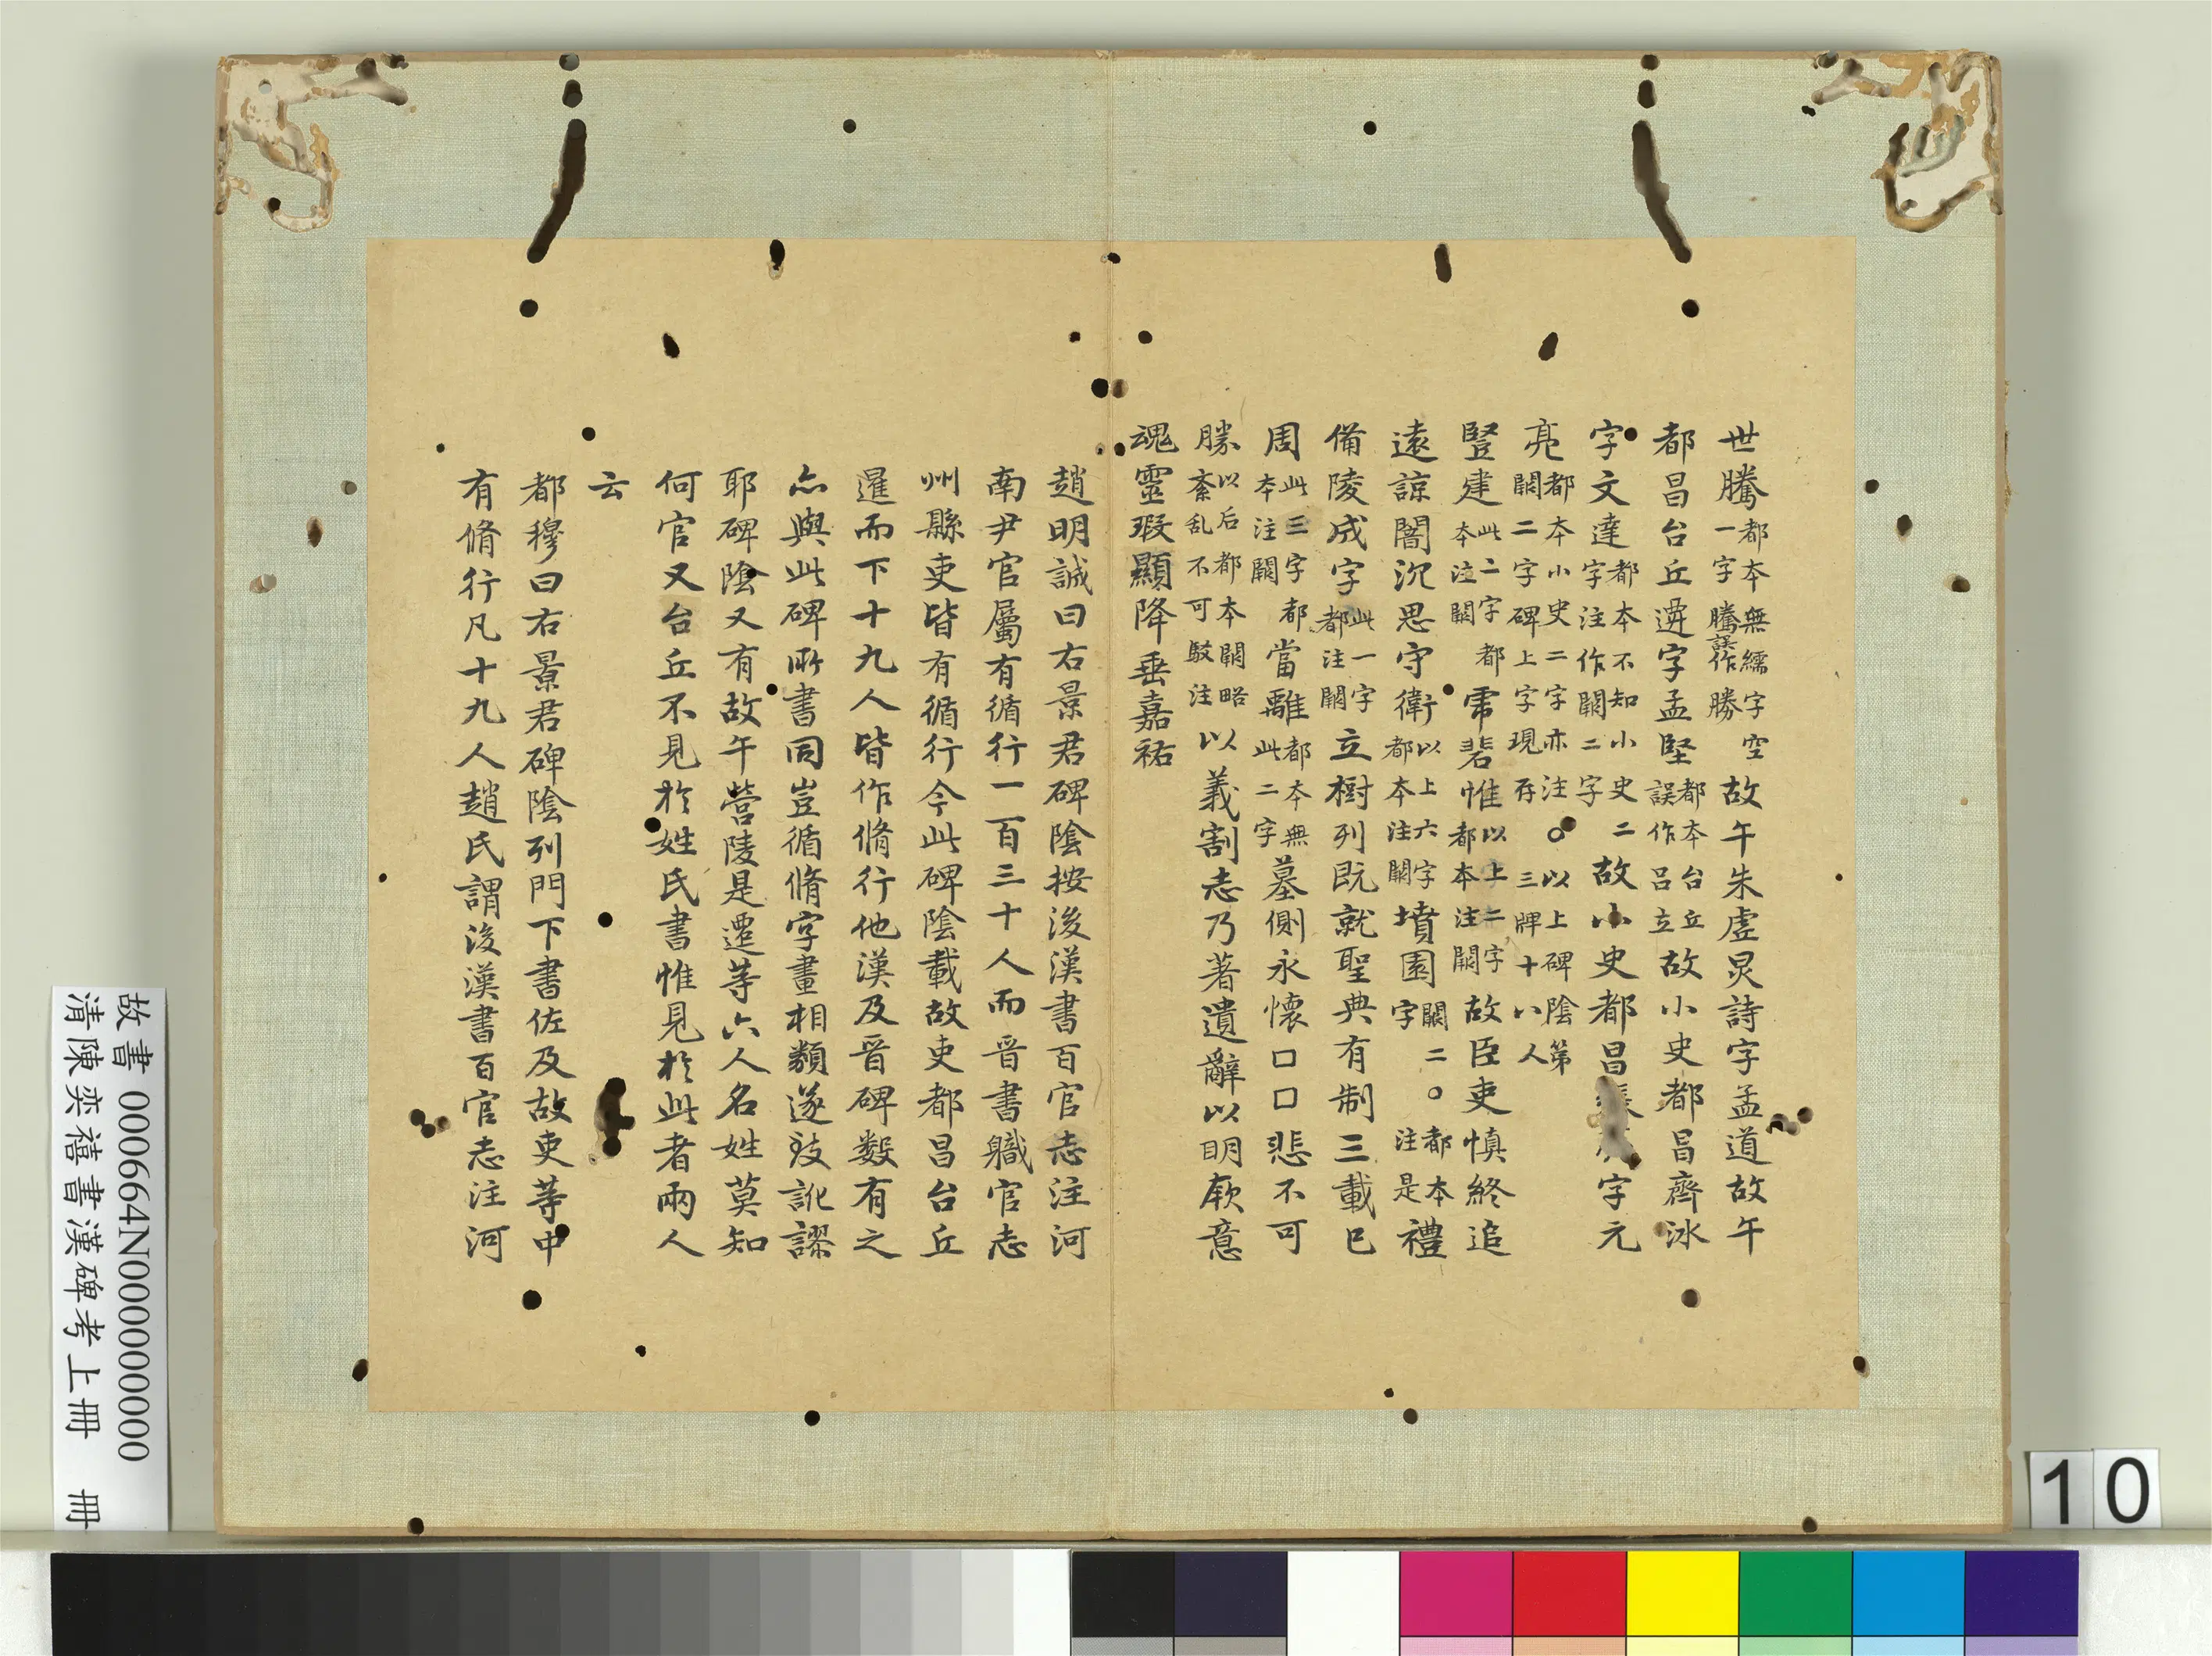 世騰都本無繻字空一字騰誤作勝故午朱虛炅詩字孟道故午
都昌台丘遷字孟堅都本台丘誤作呂立故小史都昌齊冰
字文達都本不知小史二字注作闕二字故小史都昌張字元
亮都本小史二字亦注闕二字碑上字現存○以上碑陰第三牌十八人
豎建此二字都本注闕虖碧惟以上二字都本注闕故臣吏慎終追
遠諒闇沉思守衛以上六字都本注闕墳園闕二字○都本注是禮
備陵成字此一字都注闕立樹列既就聖典有制三載已
周此三字都本注闕當離都本無此二字墓側永懷□□悲不可
勝以后都本闕略紊乱不可駁注以義割志乃著遺辭以明厥意
魂靈瑕顯降垂嘉祐
趙明誠曰右景君碑陰按後漢書百官志注河
南尹官屬有循行一百三十人而晉書職官志
州縣吏皆有循行今此碑陰載故吏都昌台丘
暹而下十九人皆作脩行他漢及晉碑数有之
亦與此碑所書同豈循脩字畫相類遂致訛謬
耶碑陰又有故午營陵是遷等六人名姓莫知
何官又台丘不見於姓氏書惟見於此者兩人
云
都穆曰右景君碑陰列門下書佐及故吏等中
有脩行凡十九人趙氏謂後漢書百官志注河
故書 000664N000000000
清陳奕禧書漢碑考上冊 冊
10